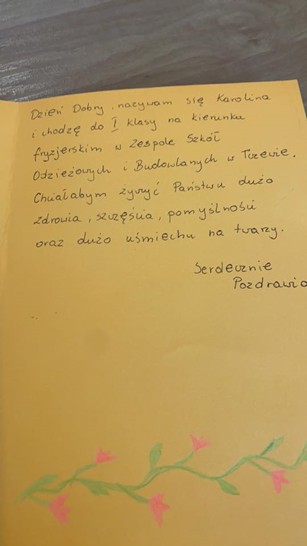 Dzień Dobry, nazywam się Karolina
i chodzę do I klasy na kierunku
fryzjerskim w Zespole Szkół
Odzieżowych i Budowlanych w
Chciałabym życzyć Państwu dużo
zdrowia, szczęścia, pomyślności
oraz dużo uśmiechu na twarzy.
Serdecznie
Pozdrawia